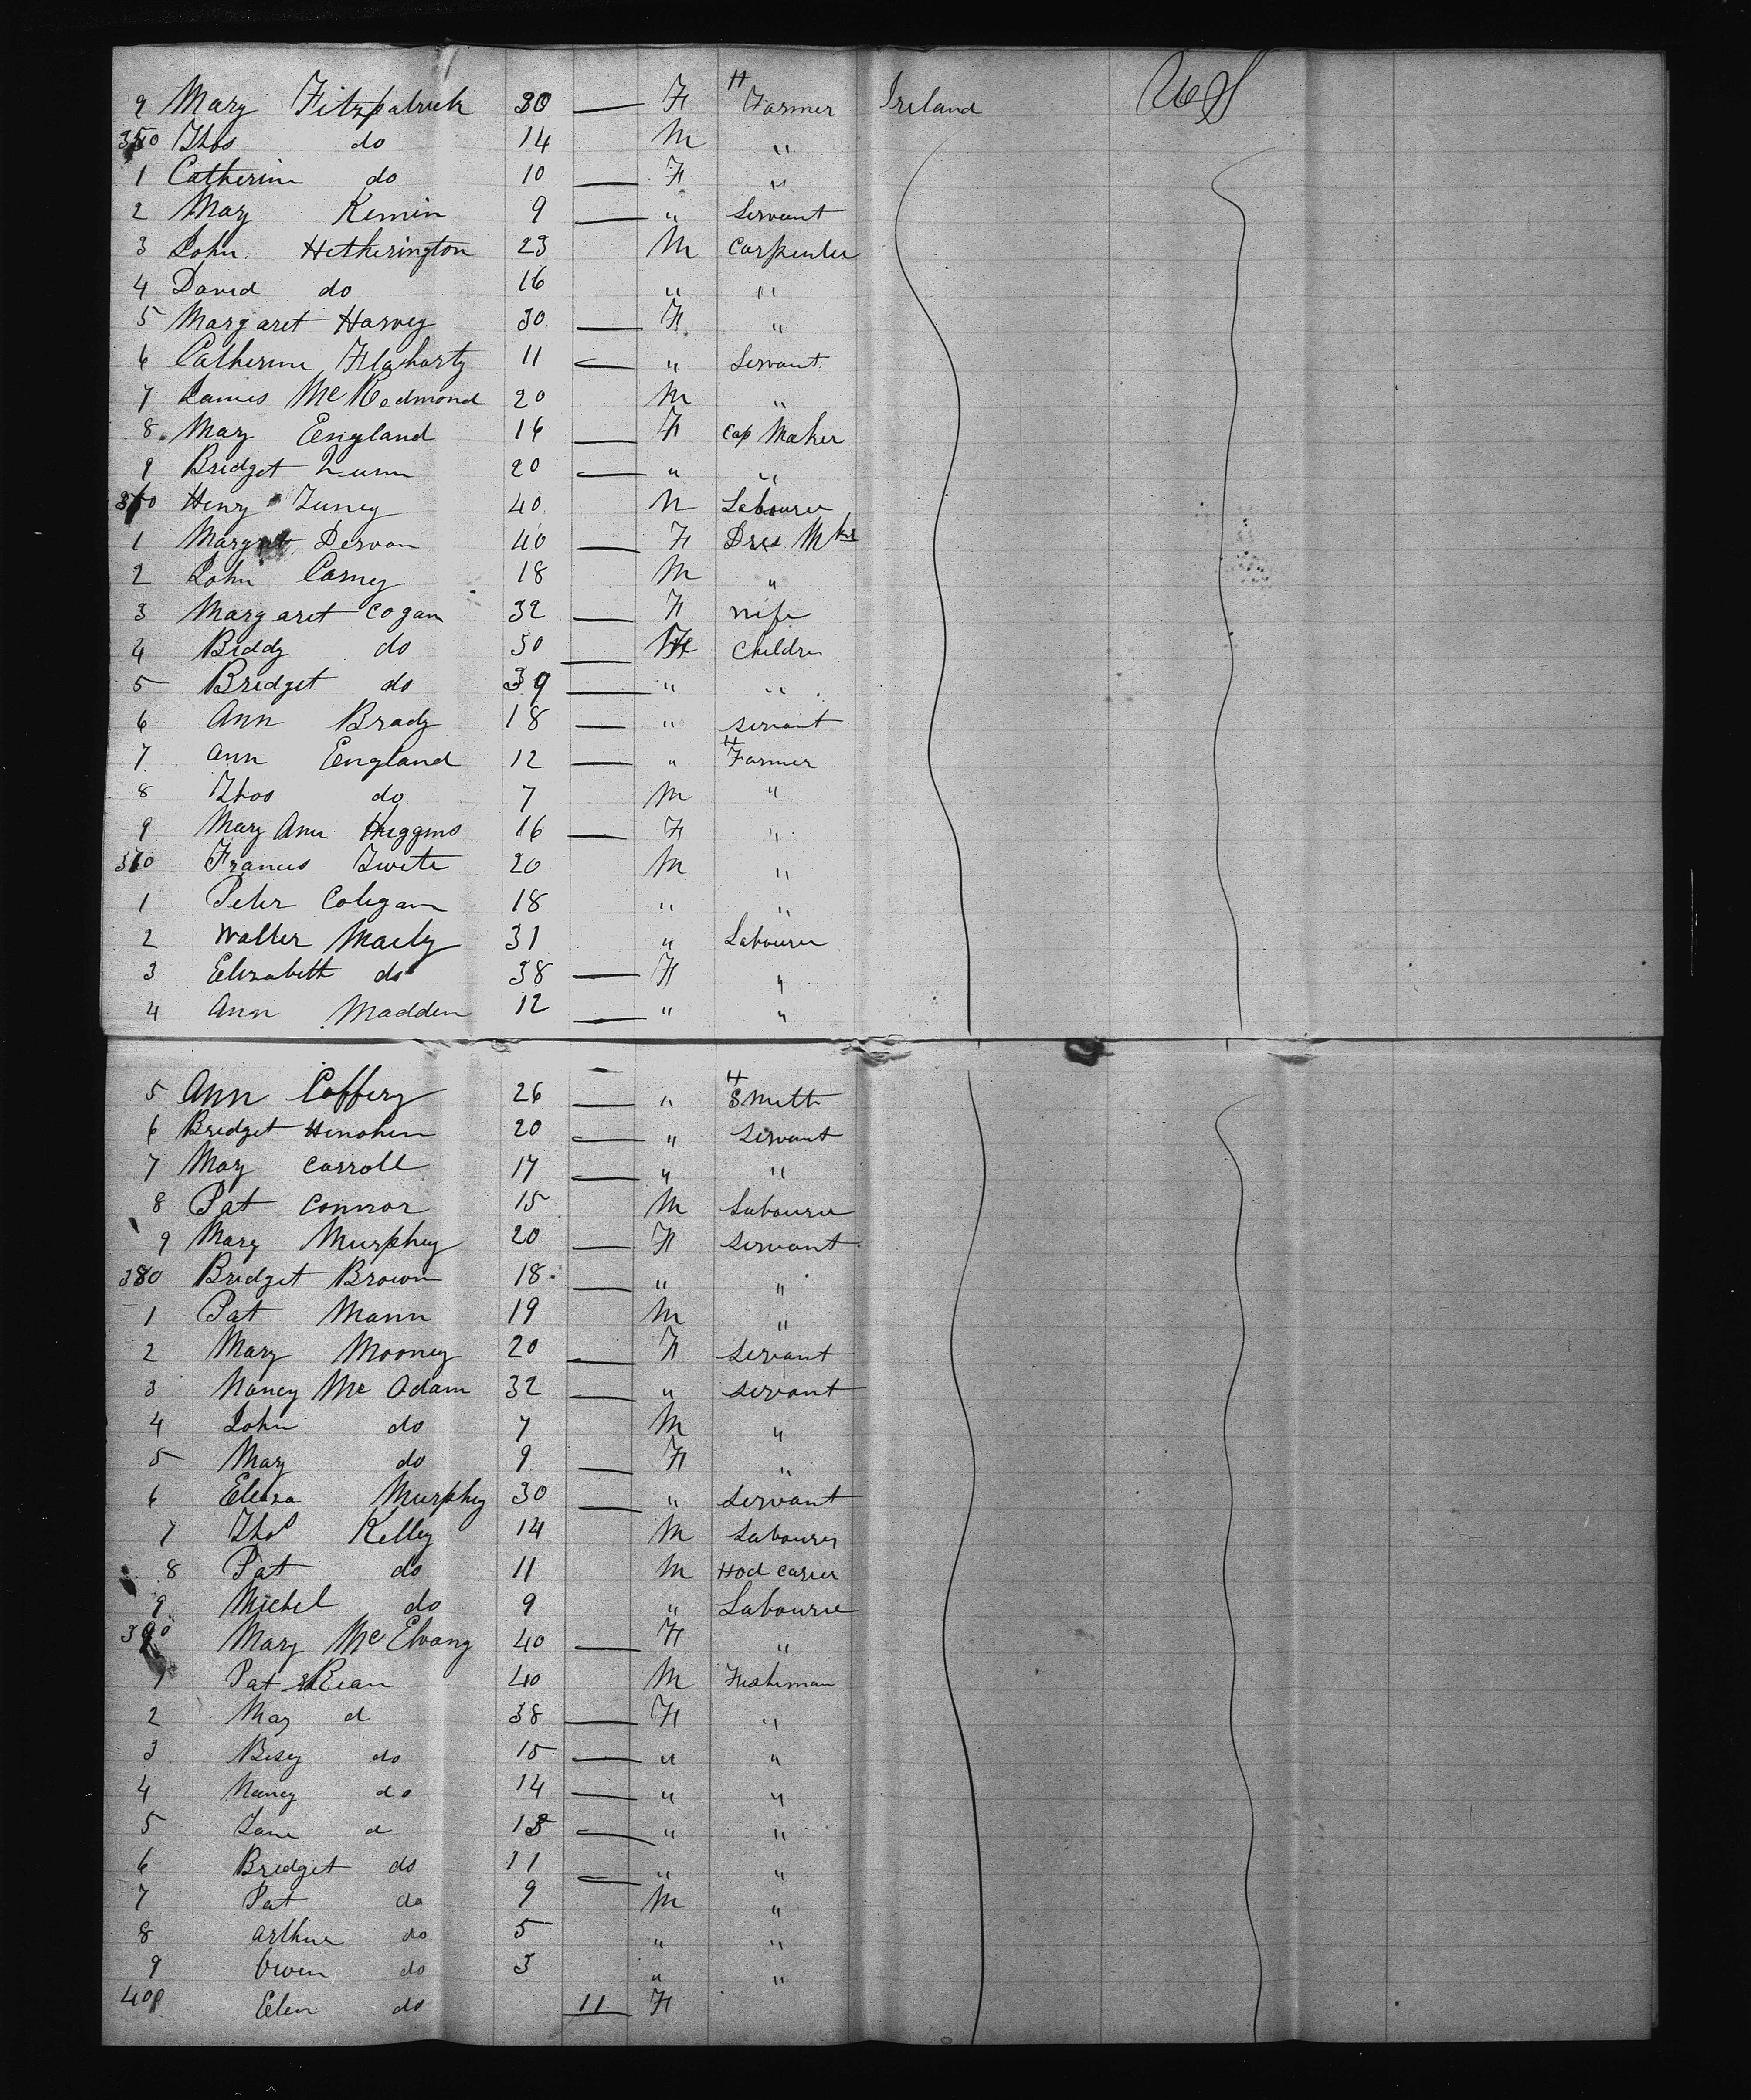 9 Mary Fitzpatrick 30 — F H Farmer Ireland U S
350 Thos do 14 M "
1 Catherine do 10 — F "
2 Mary 9 — " Servant
3 John Hetherington 23 M Carpenter
4 David do 16 " "
5 Margaret Harvey 30 — F "
6 Catherine Flaharty 11 — " Servant
7 James McRedmond 20 M "
8 Mary England 16 — F Cap Maker
9 Bridget 20 — " "
360 Henry 40 M Labourer
1 Margret Dervan 40 — F Dres Mkr
2 John Carney 18 M "
3 Margaret Cogan 32 — F Wife
4 Biddy do 30 — F Children
5 Bridget do 39 — " "
6 Ann Brady 18 — " Servant
7 Ann England 12 — " H Farmer
8 Thos do 7 M "
9 Mary Ann Huggins 16 — F "
370 Francis 20 M "
1 Peter Colegan 18 " "
2 Walter 31 " Labourer
3 Elizabeth do 38 — F "
4 Ann Madden 12 — " "
5 Ann Caffery 26 — " H Smith
6 Bridget 20 — " Servant
7 Mary Carroll 17 — " "
8 Pat Connor 15 M Labourer
9 Mary Murphy 20 — F Servant
380 Bridget Brown 18 — " "
1 Pat Mann 19 M "
2 Mary Mooney 20 — F Servant
3 Nancy McAdam 32 — " Servant
4 John do 7 M "
5 Mary do 9 — F "
6 Eliza Murphy 30 — " Servant
7 Thos Kelley 14 M Labourer
8 Pat do 11 M Hod Carier
9 Michel do 9 " Labourer
390 Mary 40 — F "
1 Pat Rean 40 M Fishiman
2 May d 38 — F "
3 Bisey do 15 — " "
4 Nancy do 14 — " "
5 Jane d 13 — " "
6 Bridget do 11 — " "
7 Pat do 9 M "
8 Arthur do 5 " "
9 Owen do 3 " "
400 Elen do 11 F